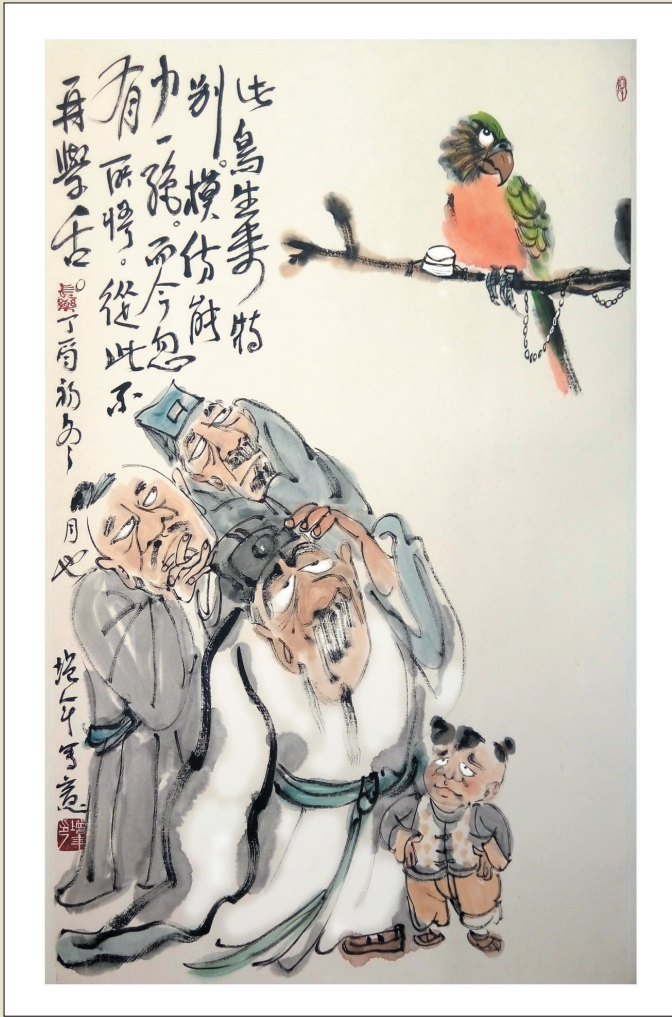 此鳥生來特
别。模仿能
力一強。而今忽
有所悟。從此不
再學舌。
長樂
丁酉初冬
月也
年写意